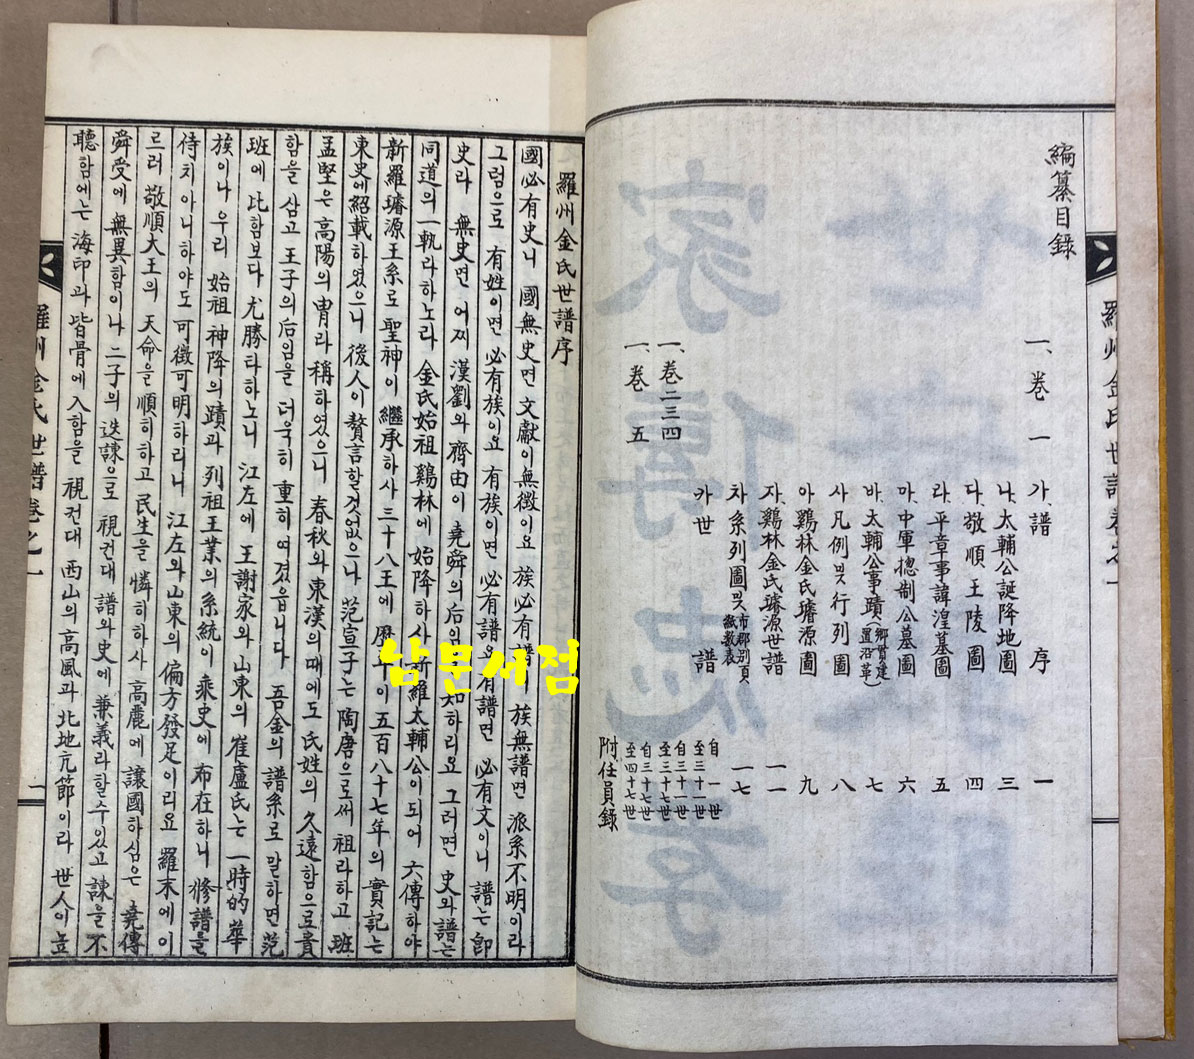 編纂目錄
一、卷一
가、譜序 一
나、太輔公誕降地圖 三
다、敬順王陵圖 四
라、平章事諱湟墓圖 五
마、中軍摠制公墓圖 六
바、太輔公事蹟(鄕賢建置沿革) 七
사、凡例및行列圖 八
아、鷄林金氏璿源圖 九
자、鷄林金氏璿源世譜 一一
차、系列圖및市郡別頁紙數表 一七
카世譜
自一世
至三十一世
一、卷二三四
自三十一世
至三十七世
一、卷五
自三十七世
至四十七世
附任員錄
羅州金氏世譜卷之一
羅州金氏世譜序
國必有史니 國無史면 文獻이無徵이요 族必有譜 族無譜면 派系不明이라
그럼으로 有姓이면 必有族이요 有族이면 必有譜요 有譜면 必有文이니 譜는 卽
史라 無史면 어찌 漢劉와 齊由이 堯舜의 后임 知하리요 그러면 史와 譜는
同道의 一軌라하노라 金氏始祖 鷄林에 始降하사 新羅太輔公이되어 六傳하야
新羅璿源王系로 聖神이 繼承하사 三十八王에 歷 이 五百八十七年의 實記는
東史에紹載하였으니 後人이 贅言할것없으나 范宣子는 陶唐으로써 祖라하고 班
孟堅은 高陽의 胄라 稱하였으니 春秋와 東漢의 때에도 氏姓의 久遠함으로貴
함을 삼고 王子의 后임을 더욱히 重히 여겼읍니다 吾金의 譜系로 말하면 范
班에 比함보다 尤勝타하노니 江左에 王謝家와 山東의 崔盧氏는 一時的 華
族이나 우리 始祖 神降의 蹟과 列祖王業의 系統이 乘史에 布在하니 修譜를
侍치아니하야도 可徵可明하리니 江左와 山東의 偏方發足이리요 羅末에 이
르러 敬順大王의 天命을 順히하고 民生을 憐히하사 高麗에 讓國하심은 堯傳
舜受에 無異함이나 二子의 迭諫으로 視컨대 譜와 史에 兼義라할수있고 諫을 不
聽함에는 海印과 皆骨에 入함을 視컨대 西山의 高風과 北地亢節이라 世人이 높
羅州金氏世譜卷之一
一
남문서점